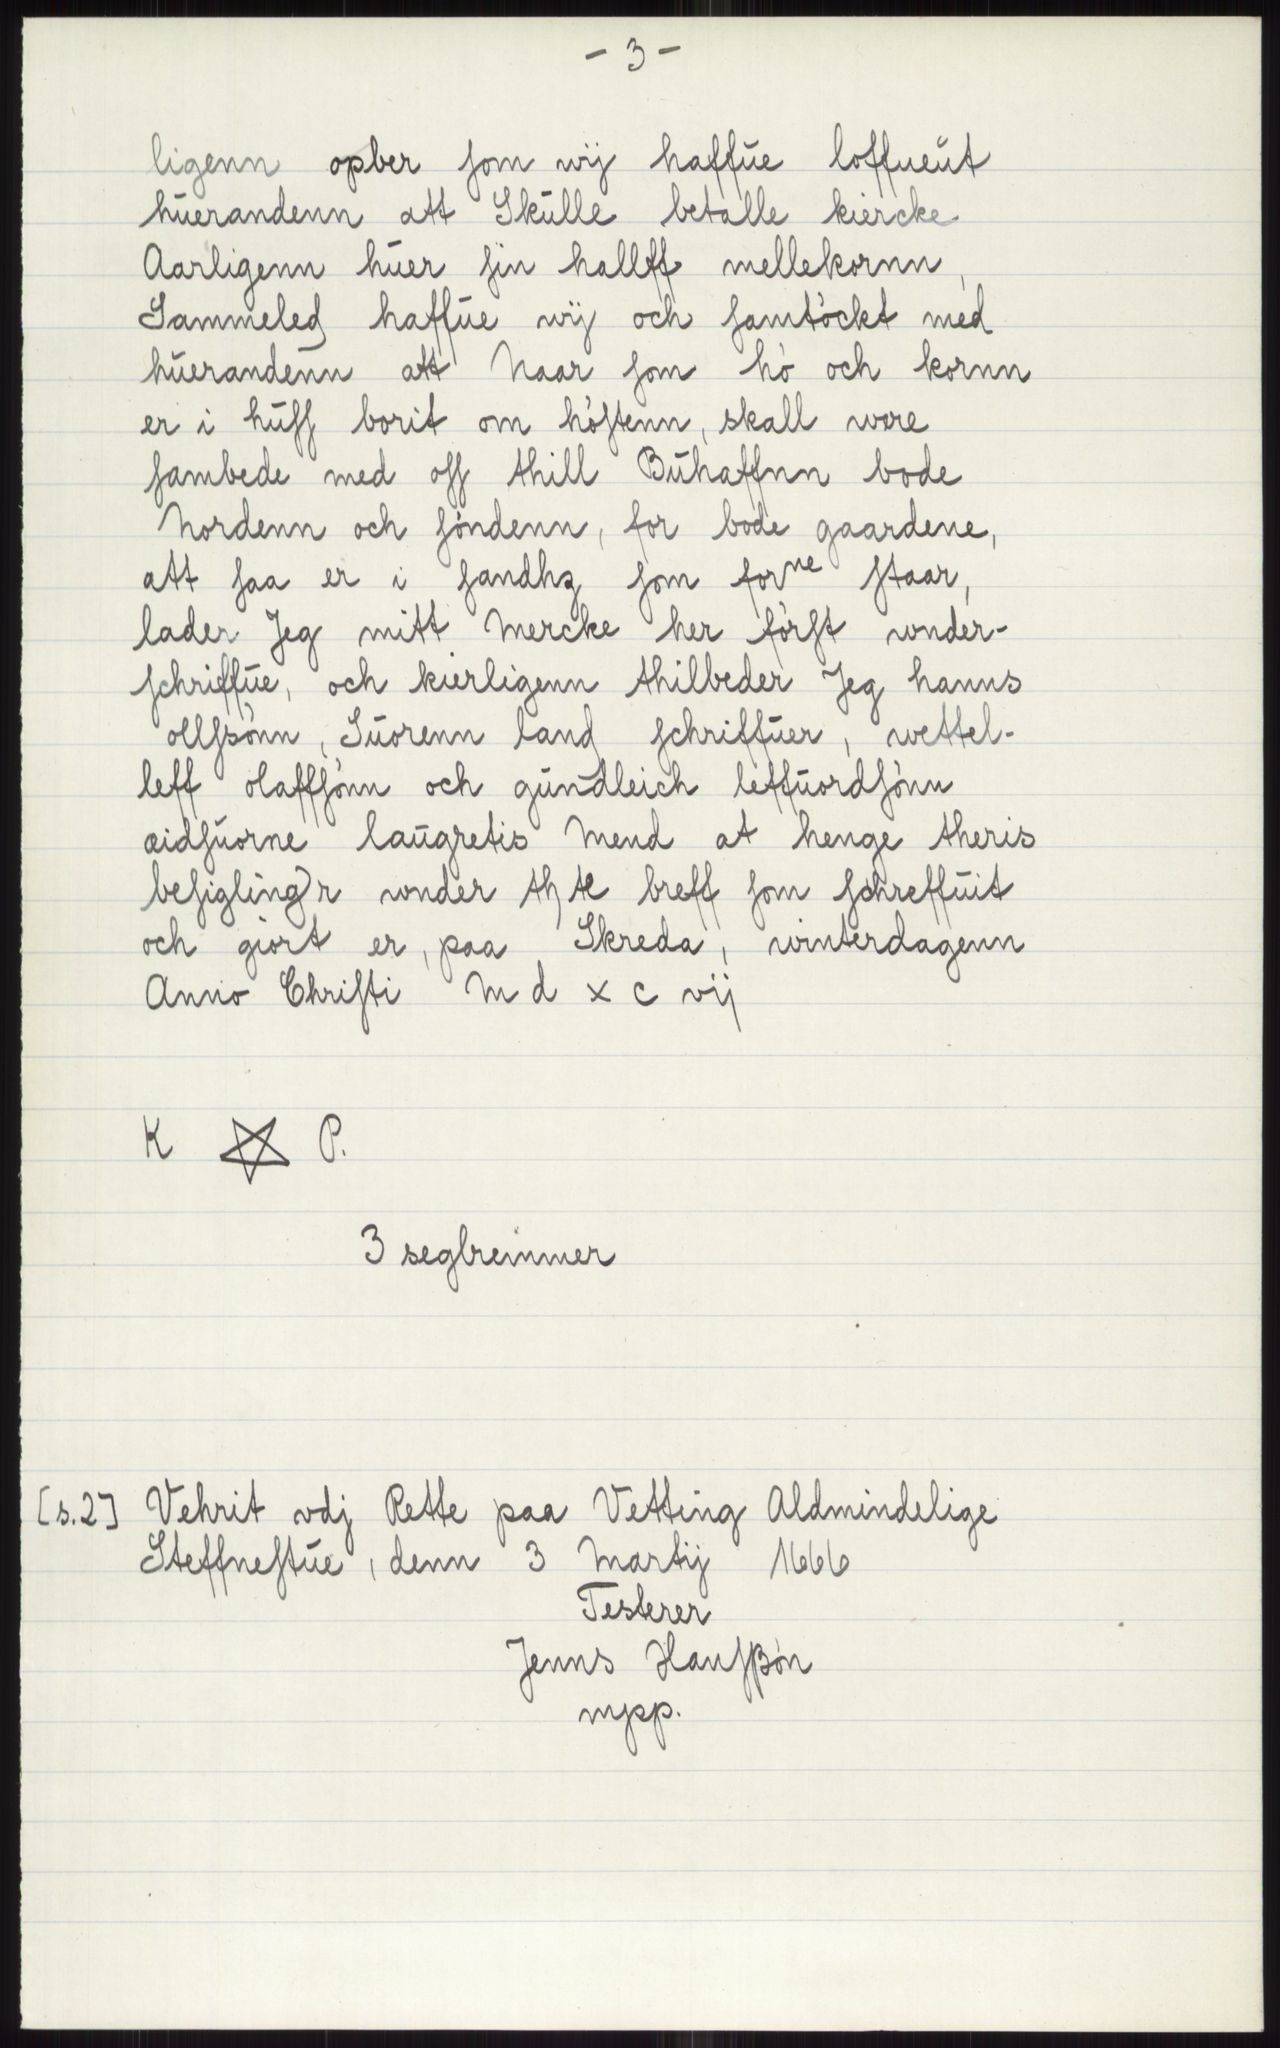 - 3 -
ligenn opber som wij haffue loffueut
huerandenn att Skulle betalle kiercke
Aarligenn huer sin hallff mellekornn,
Sammeled haffue wij och samtöckt med
huerandenn att Naar som hö och kornn
er i huss borit om höstenn, skall wore
sambede med oss thill Buhaffnn bode
Nordenn och söndenn, for bode gaardene,
att saa er i sandhz som forne staar,
lader Jeg mitt Mercke her först wnder-
schriffue, och kierligenn thilbeder Jeg hanns
ollssönn, Suorenn land schriffuer, wettel-
leff olaffsönn och gundleich leffuordsönn
æidsuorne laugretis Mend at henge theris
besigling)r wnder thtte breff som schreffuit
och giort er, paa Skreda, winterdagenn
Anno Christi M d x c vij
K P.
3 seglreimmer
[s.2] Vehrit vdj Rette paa Vetting Aldmindelige
Steffnestue, denn 3 Martij 1666
Testerer
Jenns Hansßön
mpp.